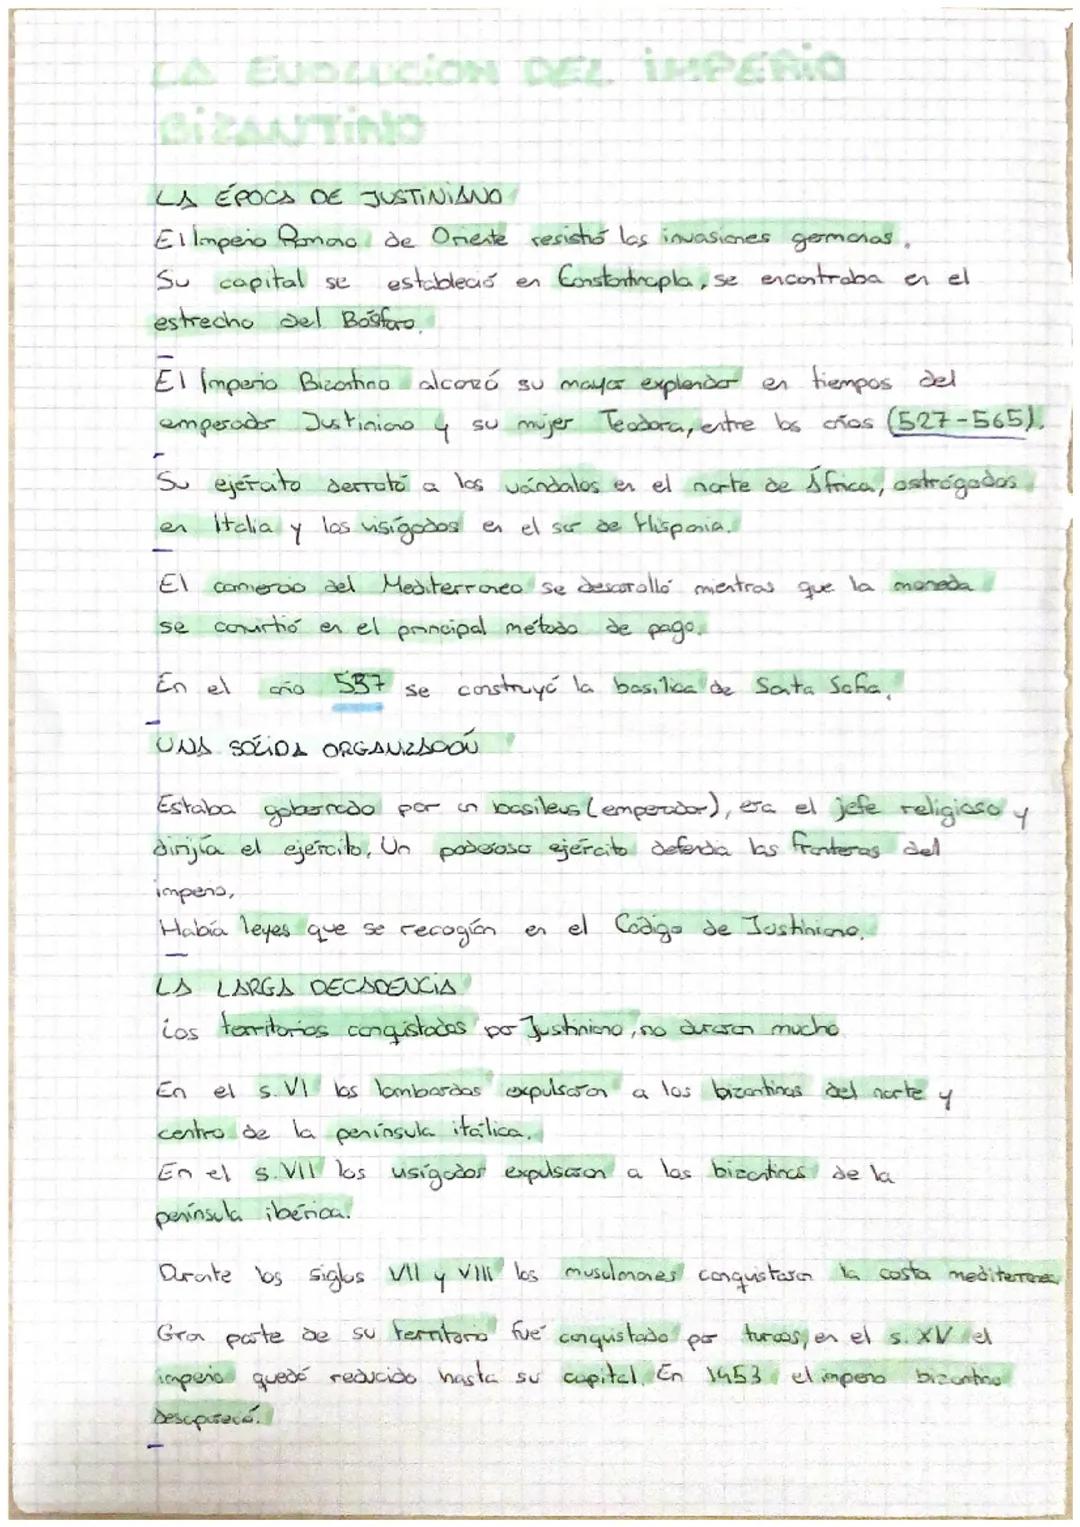 LA EVOLUCIÓN DEL IMPERIO
BIZANTINO
LA ÉPOCA DE JUSTINIANO
El Imperio Romano de Oriente resistió las invasiones germanas.
Su capital se estableció en Constantinopla, se encontraba en el
estrecho del Bósforo.
El Imperio Bizantino alcanzó su mayor explendor en tiempos del
emperador Justiniano y su mujer Teodora, entre los años (527-565).
Su ejército derrotó a los vándalos en el norte de África, ostrógodos
en Italia y los visígodos en el sur de Hispania.
El comercio del Mediterraneo se desarolló mientras que la moneda
se convirtió en el principal método de pago.
En el año 537 se construyó la basílica de Santa Sofia.
UNA SÓLIDA ORGANIZACIÓN
Estaba gobernado por un basileus (emperador), era el jefe religioso y
dirijía el ejército. Un poderoso ejército defendía las fronteras del
imperio.
Había leyes que se recogían en el Código de Justiniano.
LA LARGA DECADENCIA
Los territorios conquistados por Justiniano, no duraron mucho
En el s. VI los lombardos expulsaron a los bizantinos del norte y
centro de la península itálica.
En el s. VII los visígodos expulsaron a los bizantinos de la
península ibérica.
Durante los siglos VII y VIII los musulmanes conquistaron la costa mediterranea
Gran parte de su territorio fué conquistado por turcos, en el s. XV el
imperio quedó reducido hasta su capital. En 1453 el imperio bizantino
desapareció.